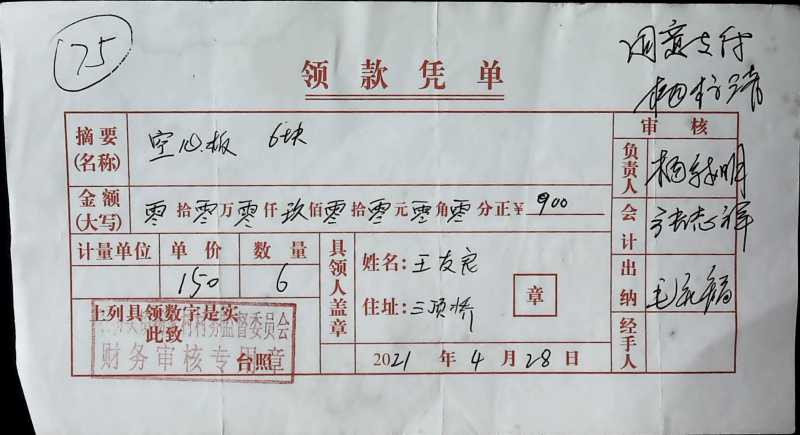 75
同意支付
领款凭单
审核
摘要(名称) 空心板 6块
金额(大写) 零拾零万零仟玖佰零拾零元零角零分正¥ 900
计量单位 单价 数量
150 6
具领人盖章
姓名:王友宏
住址:三顶桥
章
2021年4月28日
上列具领数字是实
此致
台照
村务监督委员会
财务审核专用章
负责人
会计
出纳
经手人